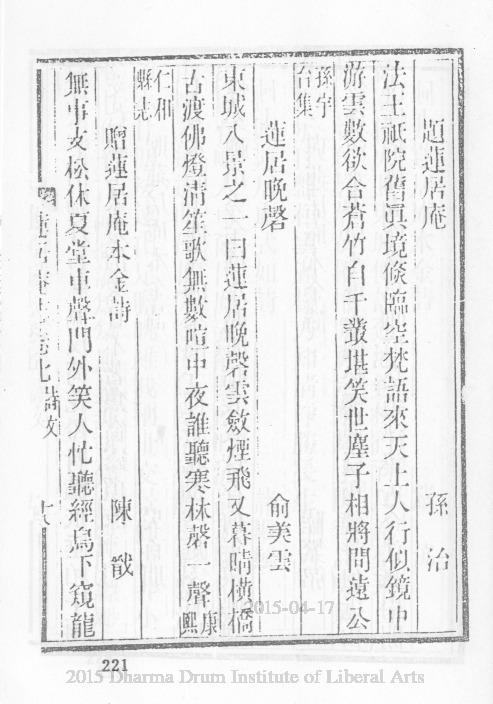 題蓮居庵 孫治
法王祇院舊眞境倐臨空梵語來天上人行似鏡中
游雲數欲合蒼竹自千叢堪笑世塵子相將問遠公
孫宇
台集
蓮居晚磬 俞美雲
東城八景之一曰蓮居晚磬雲斂煙飛又暮晴橫橋
古渡佛燈淸笙歌無數喧中夜誰聽寒林磬一聲康熙
仁和
縣志
贈蓮居庵本金詩 陳戠
無事支松休夏堂車聲門外笑人忙聽經鳥下窺龍
蓮居庵志卷七 詩文 十八
2015-04-17
221
2015 Dharma Drum Institute of Liberal Arts